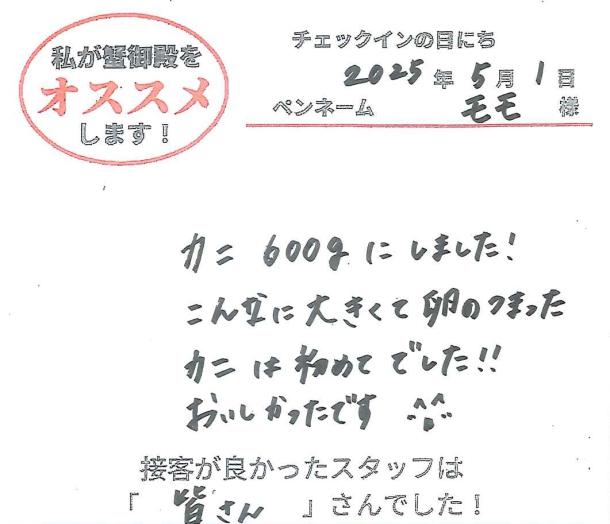 私が蟹御殿を
オススメ
します！
チェックインの日にち
2025年5月1日
ペンネーム モモ 様
カニ 600gにしました!
こんなに大きくて卵のつまった
カニは初めてでした!!
おいしかったです ^^
接客が良かったスタッフは
「 皆さん 」さんでした！